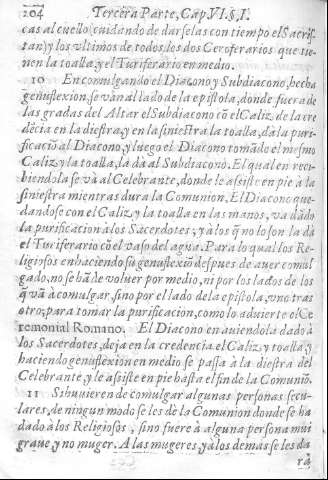 204 Tercera Parte, Cap. VI. §. I.
cas al cuello (cuidando de darselas con tiempo el Sacris
tan) y los vltimos de todos, los dos Ceroferarios que tie-
nen la toalla, y el Turiferario en medio.
10 En comulgando el Diacono y Subdiacono, hecha
genuflexion, se vàn al lado de la epistola, donde fuera de
las gradas del Altar el Subdiacono cõ el Caliz de la cre
dēcia en la diestra, y en la siniestra la toalla, dà la puri-
ficaciõ al Diacono, y luego el Diacono tomãdo el mesmo
Caliz y la toalla, la dà al Subdiacono. El qual en reci-
biendola se và al Celebrante, donde le assiste en pie à la
siniestra mientras dura la Comunion. El Diacono que-
dandose con el Caliz y la toalla en las manos, va dãdo
la purificacion à los Sacerdotes; y à los q̃ no lo son la dà
el Turiferario cõ el vaso del agua. Para lo qual los Re-
ligiosos en haciendo su genuflexiõ despues de auer comul
gado, no se hã de voluer por medio, ni por los lados de los
q̃ vã à comulgar, sino por el lado de la epistola, vno tras
otro, para tomar la purificacion, como lo aduierte el Ce
remonial Romano. El Diacono en auiendola dado à
los Sacerdotes, deja en la credencia el Caliz y toalla, y
haciendo genuflexion en medio se passa à la diestra del
Celebrante, y le assiste en pie hasta el fin de la Comuniõ.
11 Si huuieren de comulgar algunas personas secu-
lares, de ningun modo se les dè la Comunion donde se ha
dado à los Religiosos, sino fuere à alguna persona mui
graue y no muger. A las mugeres, y à los demas se les da
rà